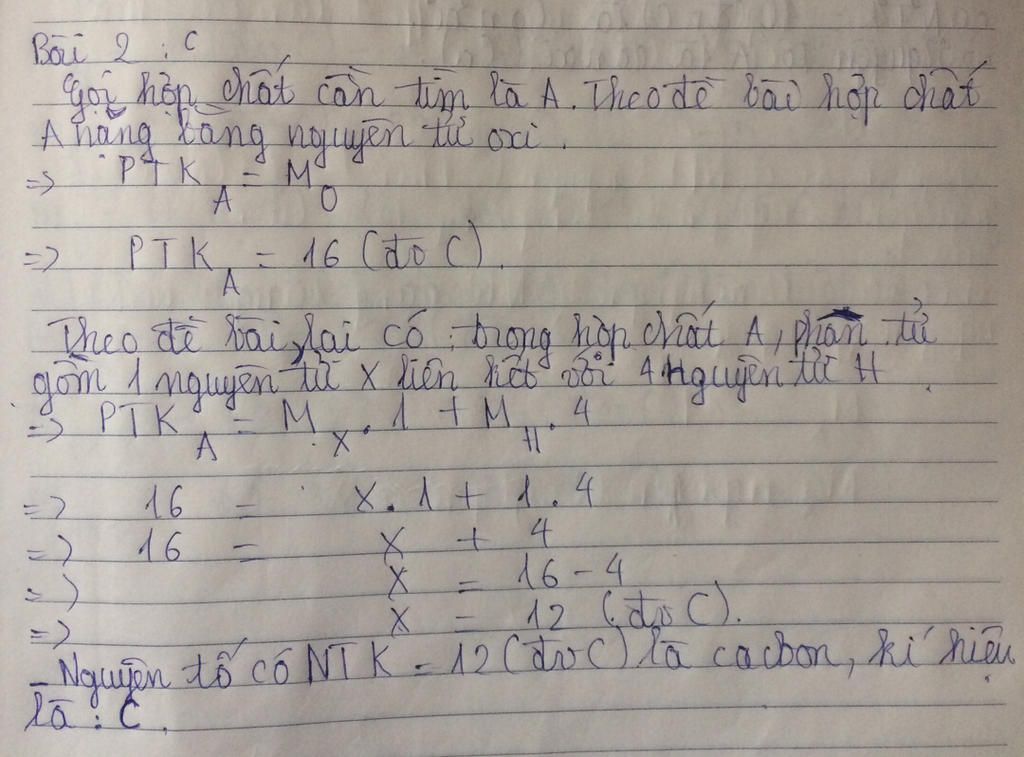 Bài 2 : C
Gọi hợp chất cần tìm là A. Theo đề bài hợp chất
A nặng bằng nguyên tử oxi.
=> PTK A = M O
=> PTK A = 16 (đv C).
Theo đề bài, lại có : trong hợp chất A, phân tử
gồm 1 nguyên tử X liên kết với 4 nguyên tử H.
=> PTK A = M X . 1 + M H . 4
=> 16 = X . 1 + 1 . 4
=> 16 = X + 4
=> X = 16 - 4
=> X = 12 (đv C).
- Nguyên tố có NTK = 12 (đv C) là cacbon, kí hiệu
là : C.